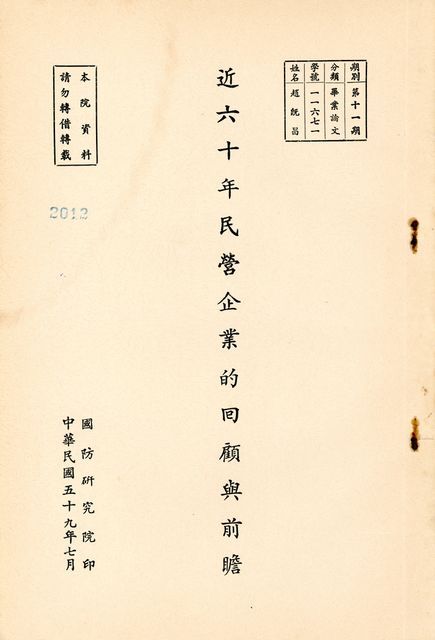 期別 第十一期
分類 畢業論文
學號 一一六七一
姓名 趙旣昌
近六十年民營企業的回顧與前瞻
本院資料
請勿轉借轉載
2012
國防研究院印
中華民國五十九年七月